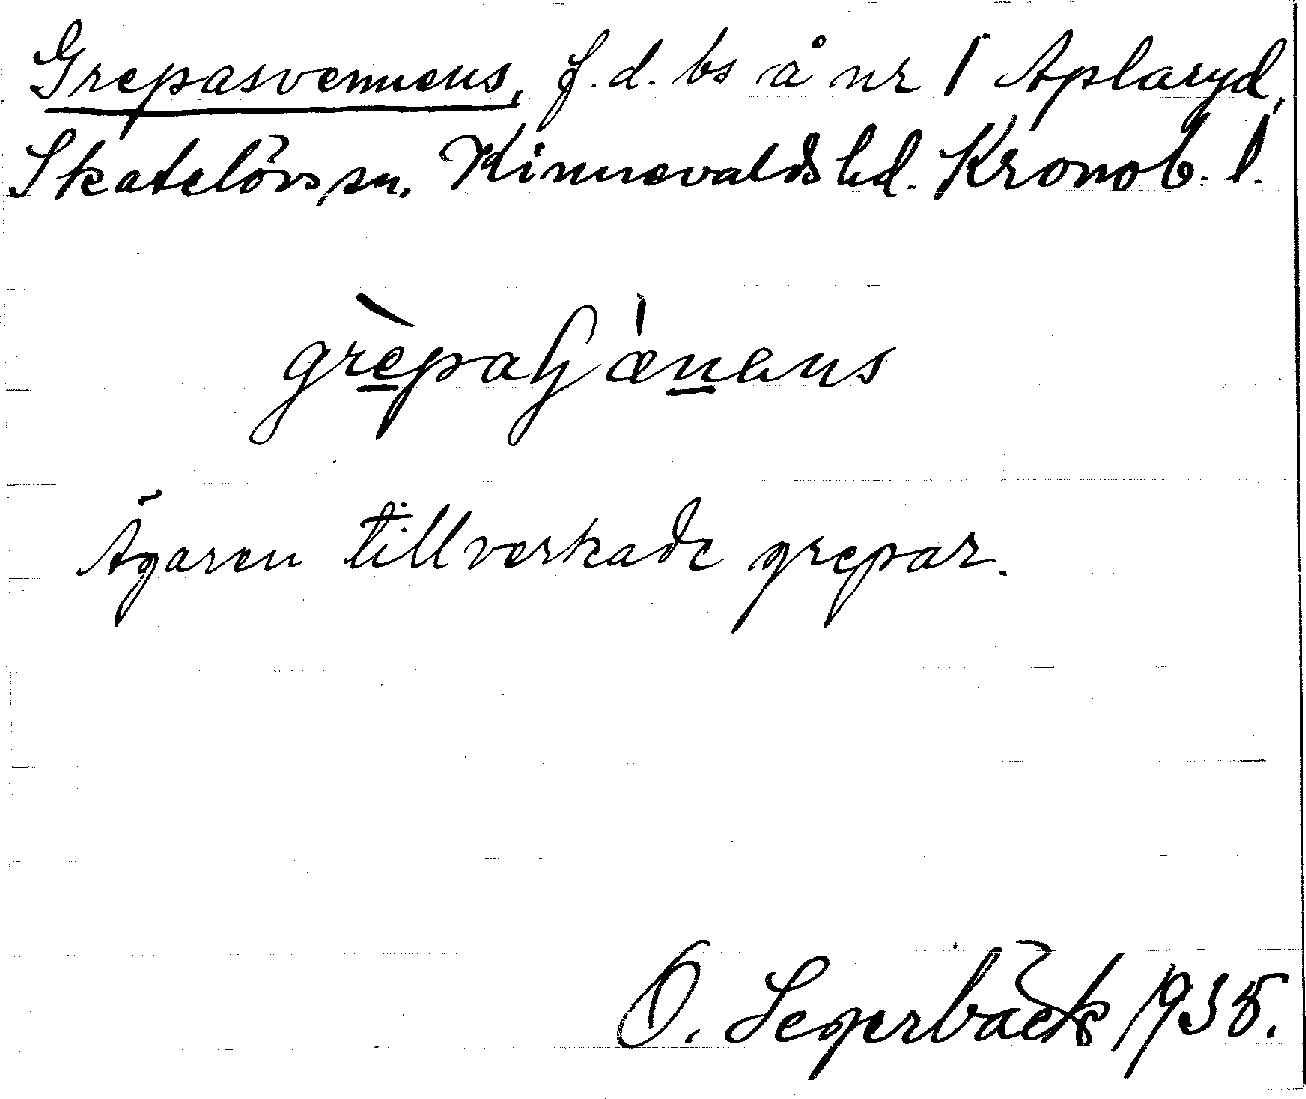 Grepasvennens, f.d. bs å nr 1 Aplaryd,
Skatelövs sn. Kinnevalds hd. Kronob. l.
Ägaren tillverkade grepar.
O. Segerbäck 1935.